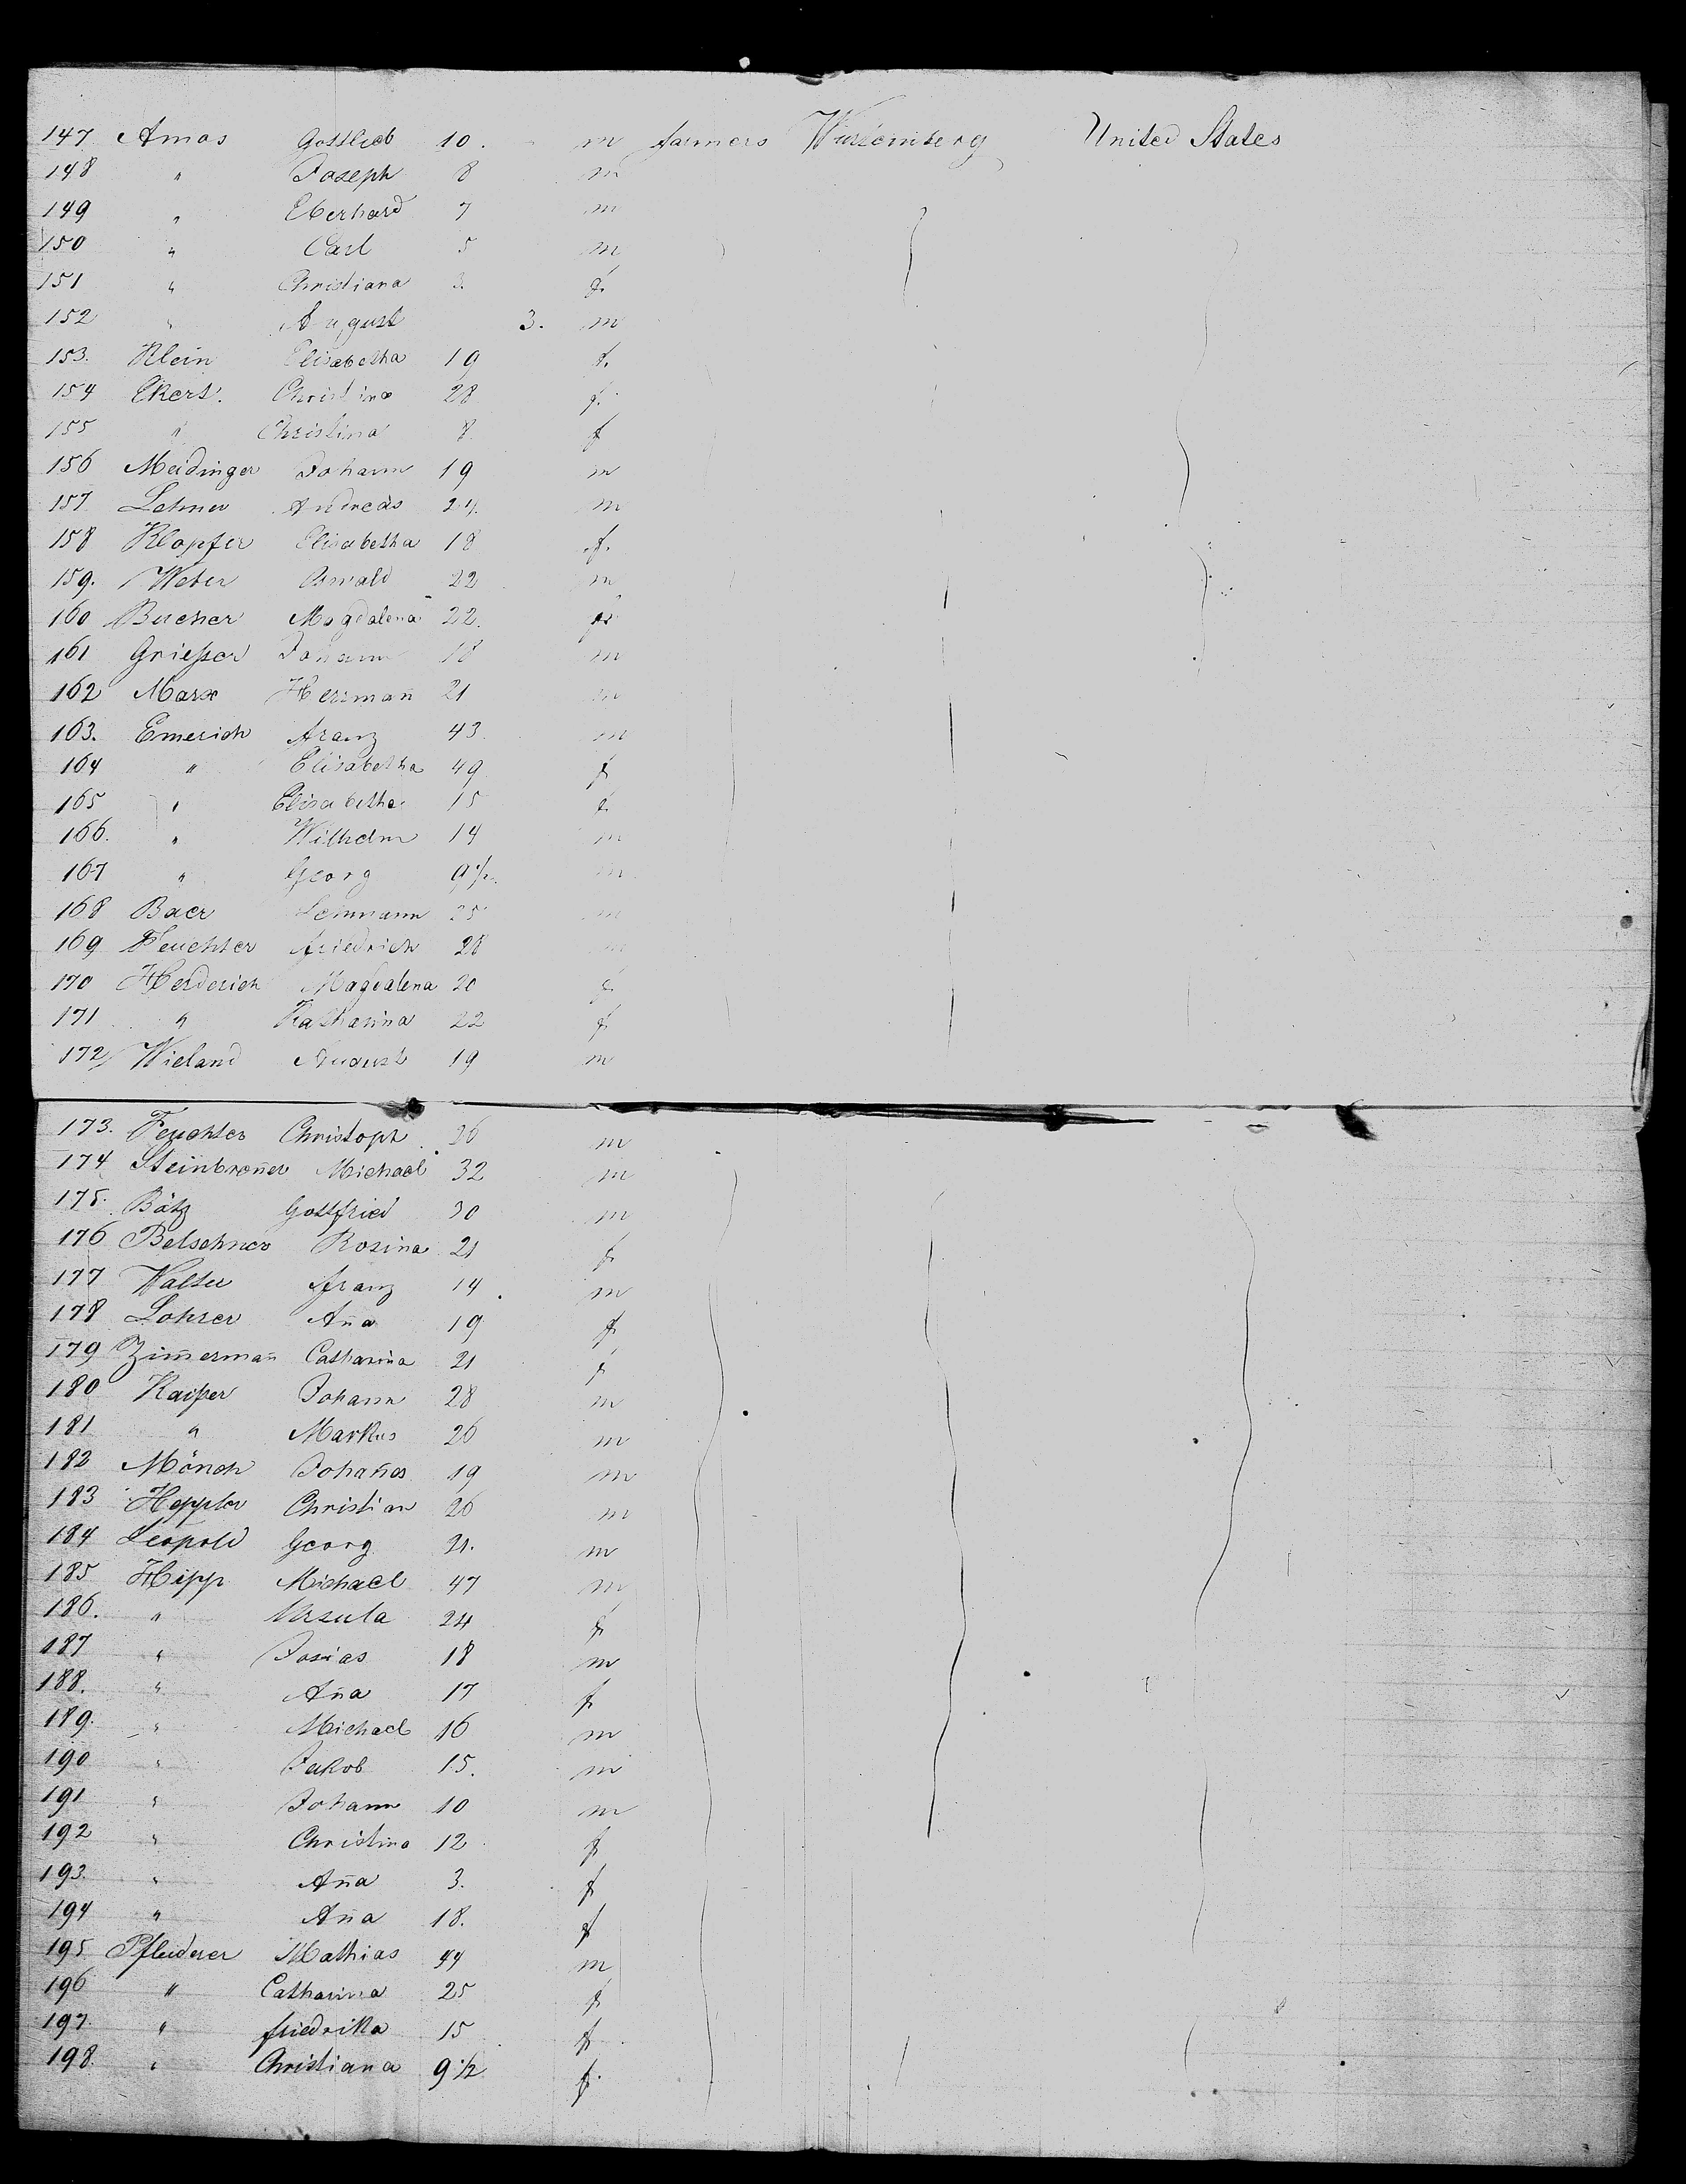 147 Amos Gottlieb 10. m farmers Würtemberg United States
148 " Joseph 8 m
149 " Eberhard 7 m
150 " Carl 5 m
151 " Christiana 3. f.
152 " August 3. m
153. Klein Elisabetha 19 f.
154 Ekert. Christina 28 f.
155 " Christina 8. f
156 Meidinger Johann 19 m
157 Lehner Andreas 24. m
158 Klopfer Elisabetha 18 f.
159. Weber Oswald 22 m
160 Bucher Magdalena 22. f
161 Grießer Johann 18 m
162 Marx Herrmañ 21 m
163. Emerich Franz 43. m
164 " Elisabetha 49 f
165 " Elisabetha 15 f.
166. " Wilhelm 14 m
167 " Georg 9½. m
168 Baer 25 m
169 Feuchter Friedrich 28 m
170 Herderich Magdalena 20 f.
171 " Katharina 22 f.
172 Wieland August 19 m
173. Feuchter Christoph 26 m
174 Steinbreñer Michael 32 m
175. Bätz Gottfried 30 m
176 Belschner Rosina 21 f.
177 Walter Franz 14. m
178 Lohrer Aña 19 f.
179 Zim̃ermañ Catharina 21 f
180 Kaißer Johann 28 m
181 " Markus 26 m
182 Mönch Johañes 19 m
183 Heppler Christian 26 m
184 Leopold Georg 21. m
185 Hipp Michael 47 m
186. " Ursula 24 f
187 " Josias 18 m
188. " Aña 17 f.
189. " Michael 16 m
190 " Jakob 15. m
191 " Johann 10 m
192 " Christina 12 f
193. " Aña 3. f
194 " Aña 18. f
195 Pfleiderer Mathias 44 m
196 " Catharina 25 f
197. " Friedrika 15 f.
198. " Christiana 9½ f.